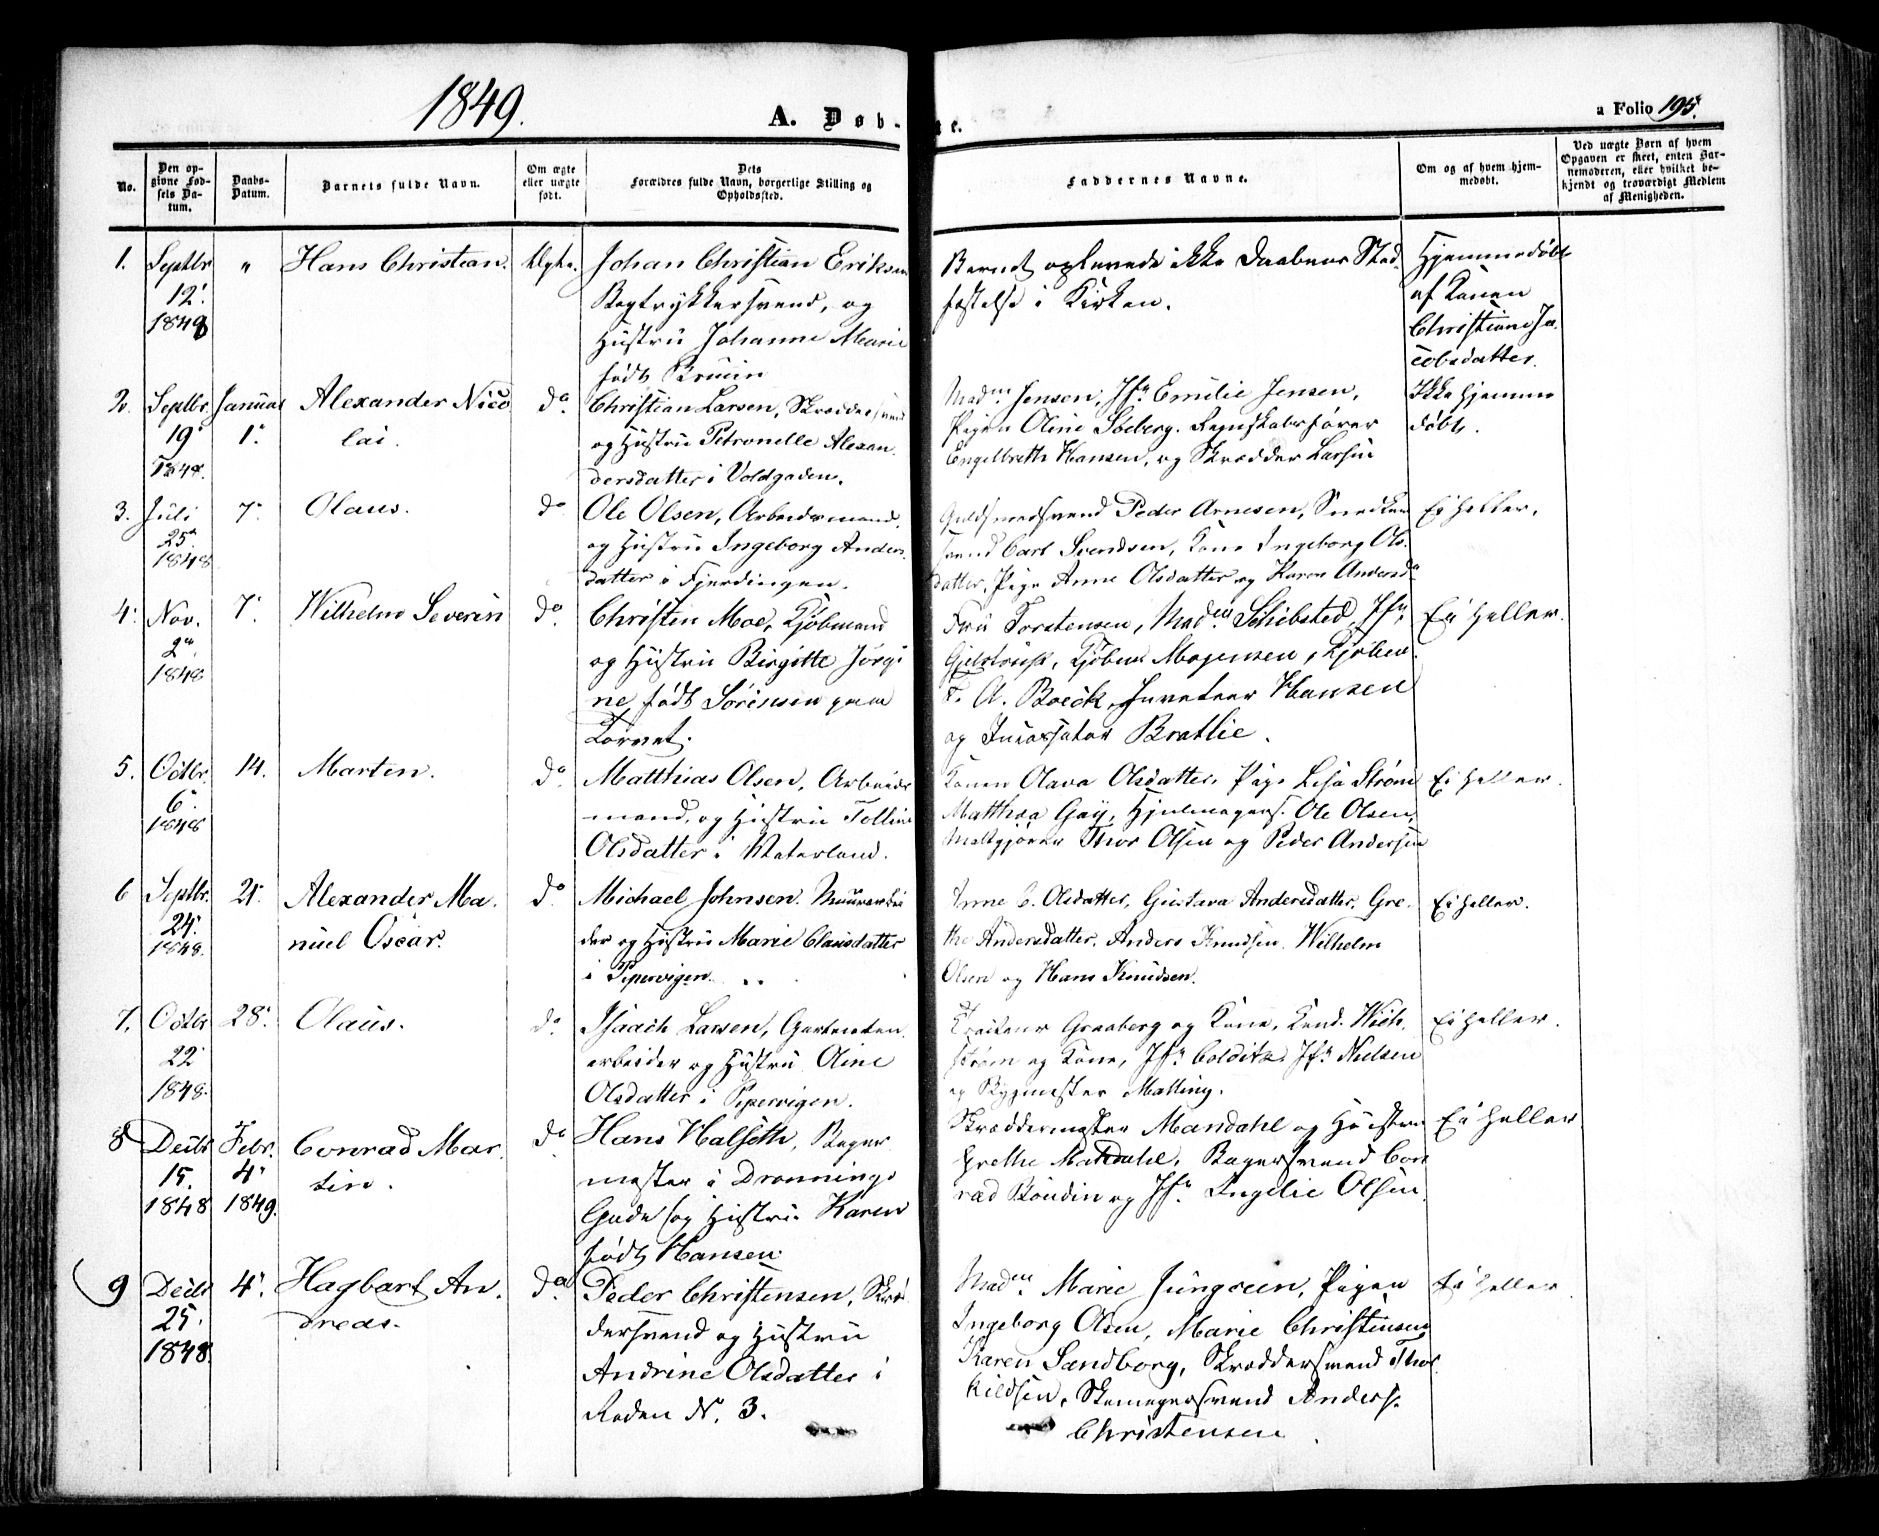 1849.
A. Døb-
te.
a Folio 195.
No.
Den op-
givne Fød-
sels Da-
tum.
Daabs-
Datum.
Barnets fulde Navn.
Om ægte
eller uægte
født.
Dets
Forældres fulde Navn, borgerlige Stilling og
Opholdssted.
Faddernes Navne.
Om og af hvem hjem-
medøbt.
Ved uægte Børn af hvem
Opgaven er skeet, enten Bar-
nemoderen, eller hvilket be-
kjendt og troværdigt Medlem
af Menigheden.
1.
Septbr
12.
1848
"
Hans Christian.
Johan Christian Eriksen
Bogtrykkersvend, og
Hustru Johanne Marie
født Bruun
Barnet oplevede ikke Daabens Stad-
fæstelse i Kirken.
Hjemmedøbt
af Konen
Christiane Ja-
cobsdatter.
2.
Septbr
19
1848.
Januar
1.
Alexander Nico
lai.
do.
Christian Larsen, Skræddersvend
og Hustru Petronelle Alexan
dersdatter i Voldgaden.
Madm Jensen, Jfr Emilie Jensen,
Pigen Oline Søeberg. Regnskabsfører
Engelbreth Hansen, og Skrædder Larsen
Ikke hjemme
døbt.
3.
Juli
25
1848
7.
Olaus.
do
Ole Olsen, Arbeidsmand,
og Hustru Ingeborg Anders
datter i Fjerdingen.
Guldsmedsvend Peder Arnesen, Snedker
svend Carl Svendsen, Kone Ingeborg Ols-
datter, Pige Anne Olsdatter og Karen Andersd
Ei heller.
4.
Nov.
2
1848
7.
Wilhelm Severin
do.
Christen Moe, Kjøbmand
og Hustru Birgitte Jørgi
ne, født Sørensen paa
Torvet.
Fru Torstensen, Madm Schibsted, Jfr
Kjøbm Mogensen, Kjøbm.
F. A. Boeck, Hansen
og Brathie.
Ei heller.
5.
Octbr.
6
1848
14.
Marten.
do
Matthias Olsen, Arbeids
mand, og Hustru Telline
Olsdatter i Vaterland.
Konen Olava Olsdatter, Pige Lisa Strøm
Matthea Gay, Hjulmagers. Ole Olsen,
Maltgjører Thor Olsen og Peder Andersen
Ei heller.
6
Septbr
24.
1848.
21.
Alexander Ma-
nuel Oscar.
do
Michael Johnsen. Muurarbei
der og Hustru Marie Clausdatter
i Pipervigen.
Anne C. Olsdatter, Gustava Andersdatter, Gre-
the Andersdatter, Anders Knudsen, Wilhelm
Olsen og Hans Knudsen.
Ei heller.
7.
Octbr
22
1848.
28.
Olaus.
do
Isaach Larsen, Gartner
arbeider og Hustru Oline
Olsdatter i Pipervigen.
Graaberg og Kone, Cand. Wich-
strøm og Kone, Jfr Colditz, Jfr Nielsen
og Bygmester Malling.
Ei heller.
8
Decbr
15.
1848
Febr.
4
1849.
Conrad Mar
tin.
do
Hans Halseth, Bager
mester i Dronningens
Gade og Hustru Karen
født Hansen.
Skræddermester Mandahl og Hustru
Grethe Mandahl, Bagersvend Con
rad Boudin og Jfr Ingelie Olsen
Ei heller
9
Decbr
25.
1848
4.
Hagbart An-
dreas.
do.
Peder Christensen, Skræ
dersvend og Hustru
Andrine Olsdatter i
Roden No. 3.
Madm. Marie Jungreen, Pigen
Ingeborg Olsen, Marie Christensen,
Karen Sandborg, Skræddersvend Thor
kildsen, Skomagersvend Anders
Christensen
Ei heller